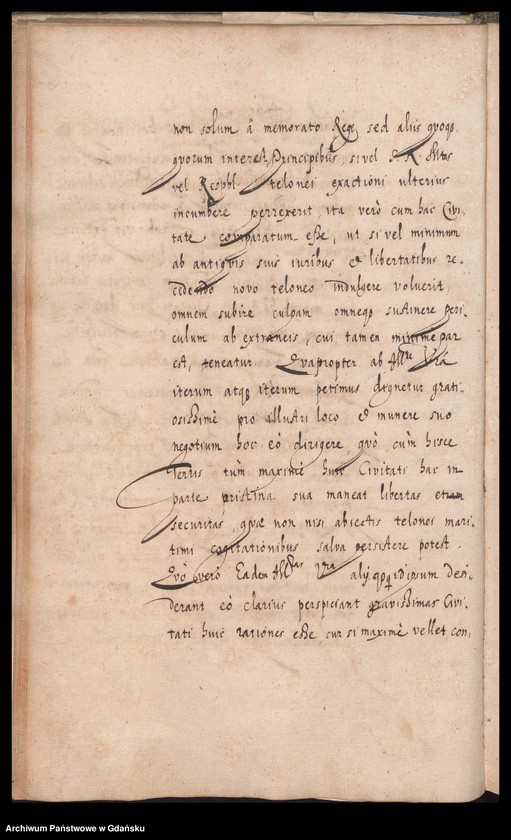 non solum â memorato Rege, sed aliis quoq.
quorum interest, Principibus, si vel S. R. Mtas
vel Respbl. telonei exactioni ulterius
incumbere perrexerit, ita verò cum hac Civi,
tate comparatum esse, ut si vel minimum
ab antiquis suis iuribus et libertatibus re,
cedendo novo teloneo indulgere voluerit,
omnem subire culpam omneq sustinere peri,
culum ab extraneis, cui tamen minimè par
est, teneatur. Quapropter ab Illre Vrâ
iterum atq iterum petimus dignetur grati,
osissimè pro illustri loco et munere suo
negotium hoc eò dirigere, quò cùm hisce
Terris tùm maximè huic Civitati hac in
parte pristina sua maneat libertas etiam
securitas, quae non nisi abiectis telonei mari,
timi cogitationibus salva persistere potest.
Quò verò Eadem Vra alijq idipsum desi,
derant eò clarius perspiciant gravissimas Civi,
tati huic rationes esse, cur si maximè vellet con,
Archiwum Państwowe w Gdańsku